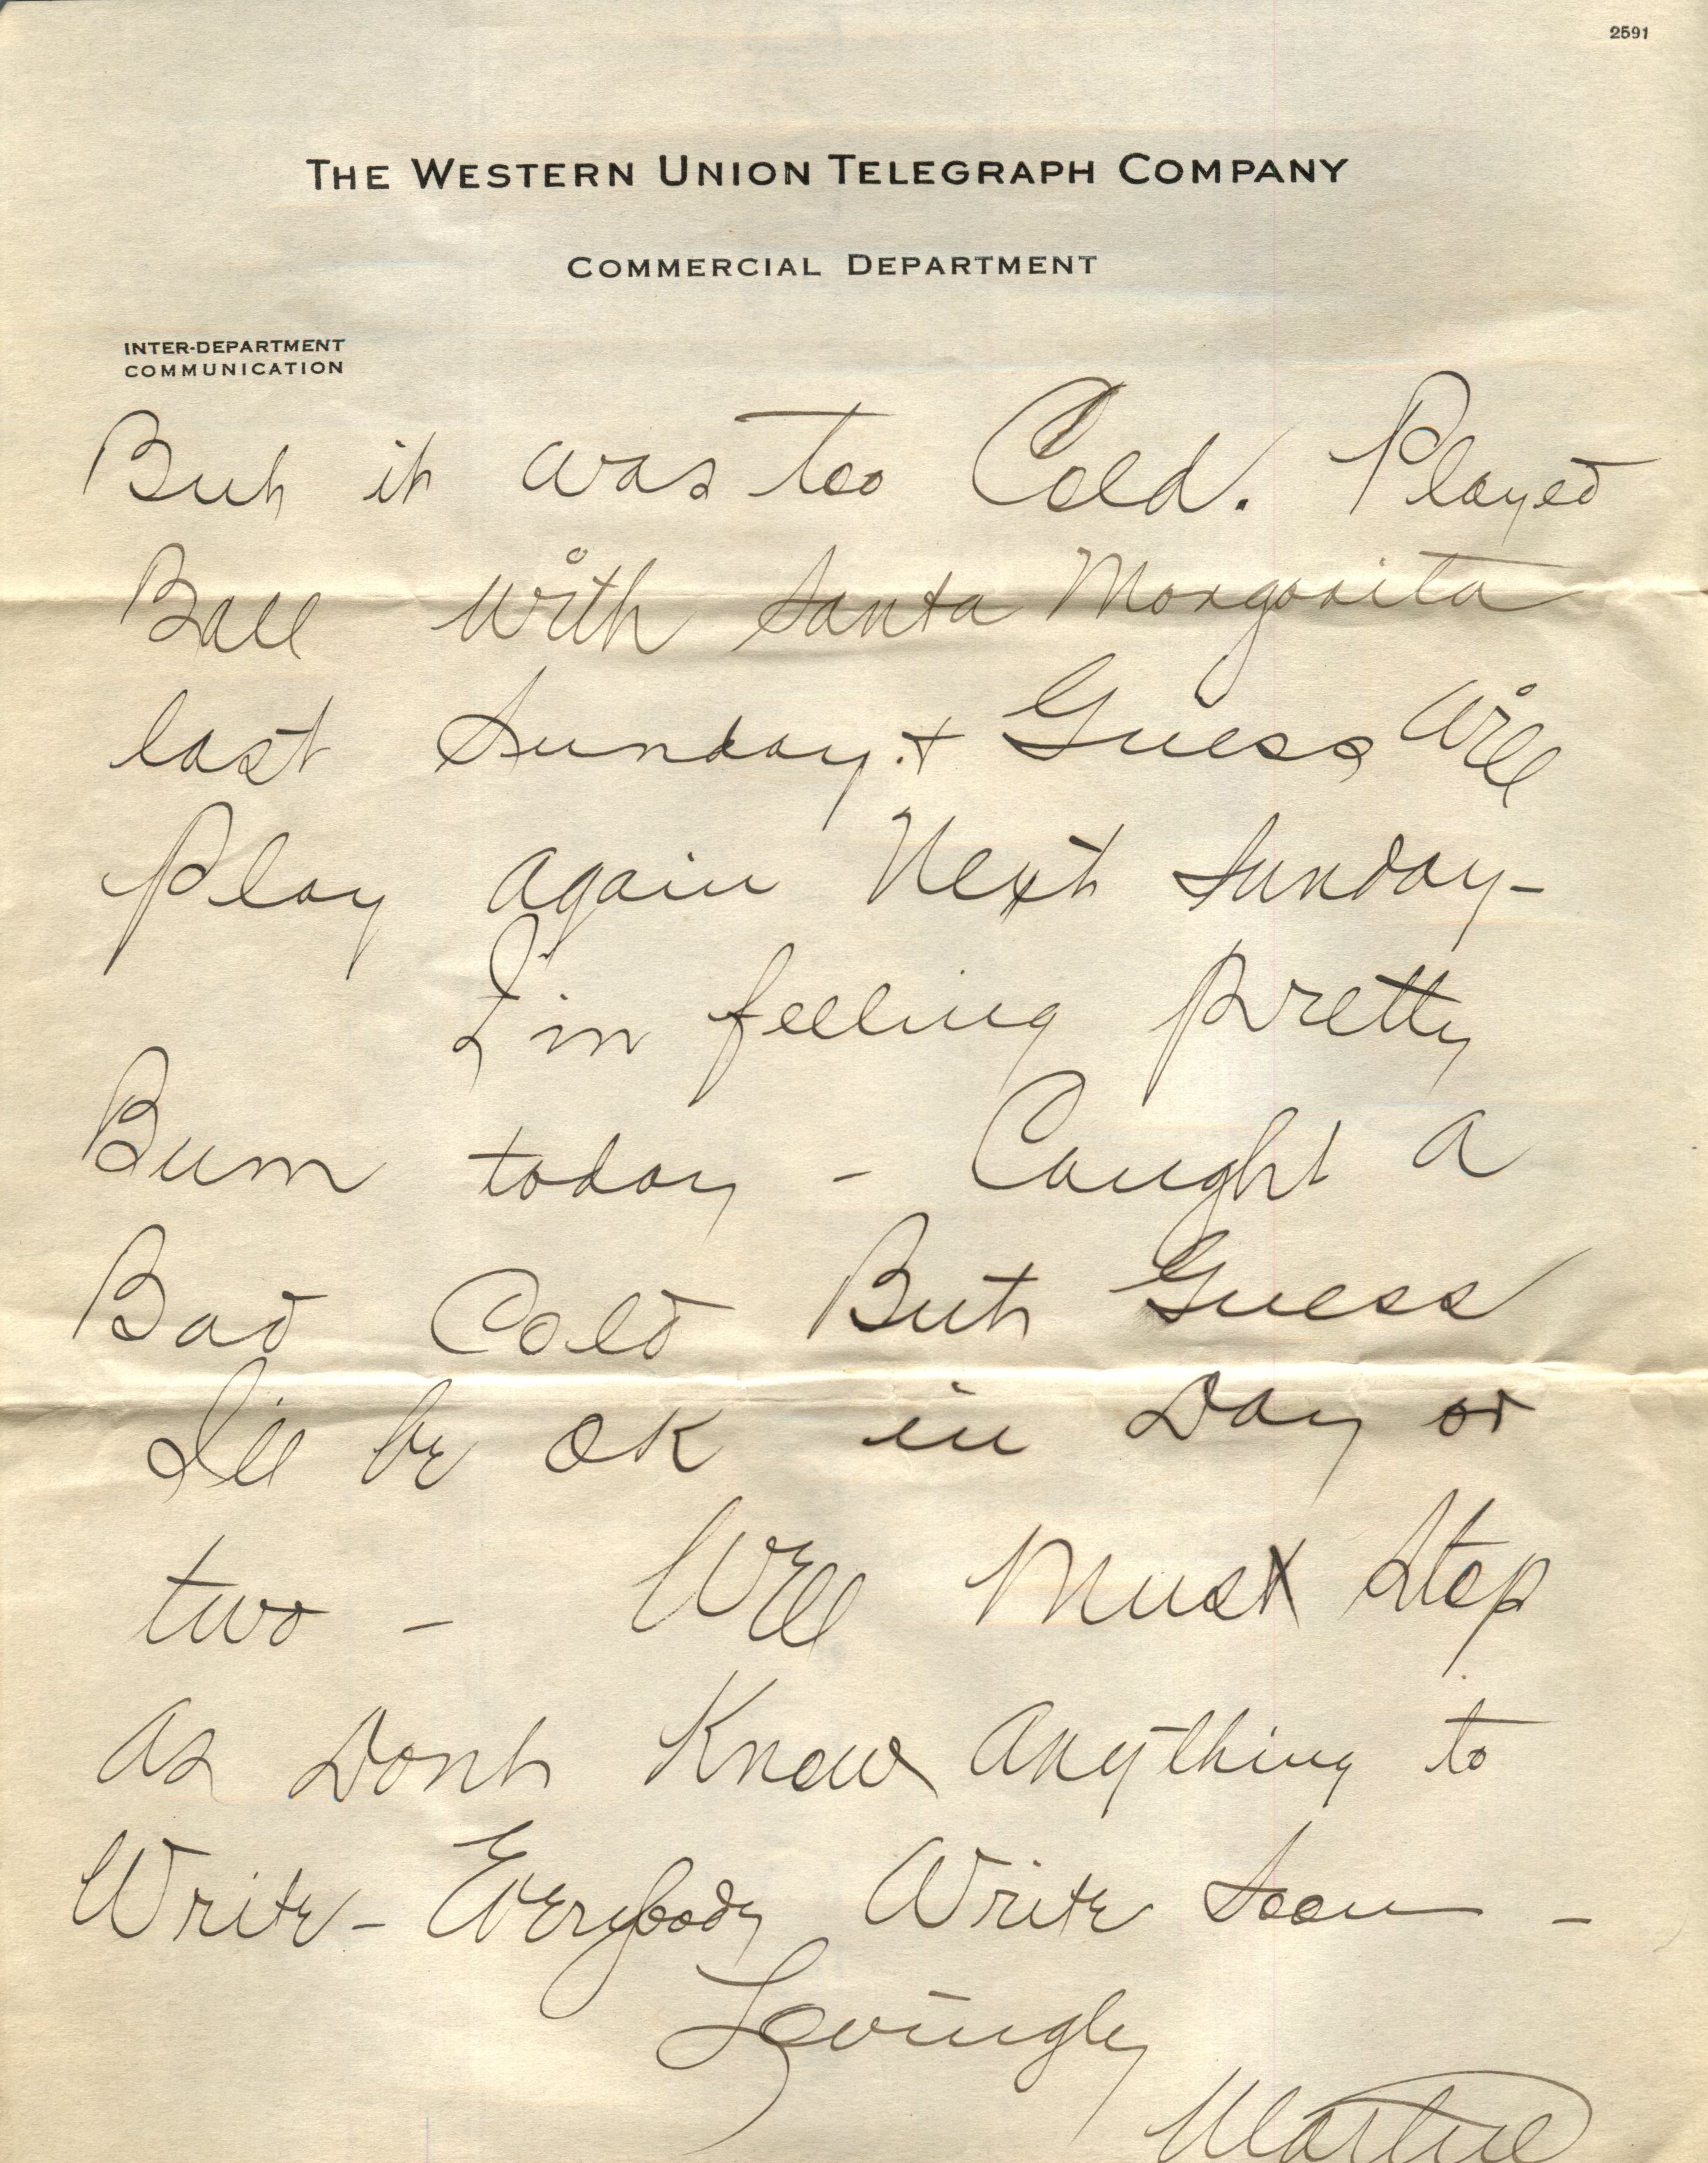 2591
THE WESTERN UNION TELEGRAPH COMPANY
COMMERCIAL DEPARTMENT
INTER-DEPARTMENT
COMMUNICATION
But it was too Cold. Played
Ball with Santa Margarita
last Sunday. + Guess Will
Play again Next Sunday-
I'm feeling Pretty
Bum today - Caught a
Bad Cold But Guess
I'll be OK in Day or
two - Well Must Stop
as Dont Know anything to
Write - Everybody Write Soon -
Lovingly